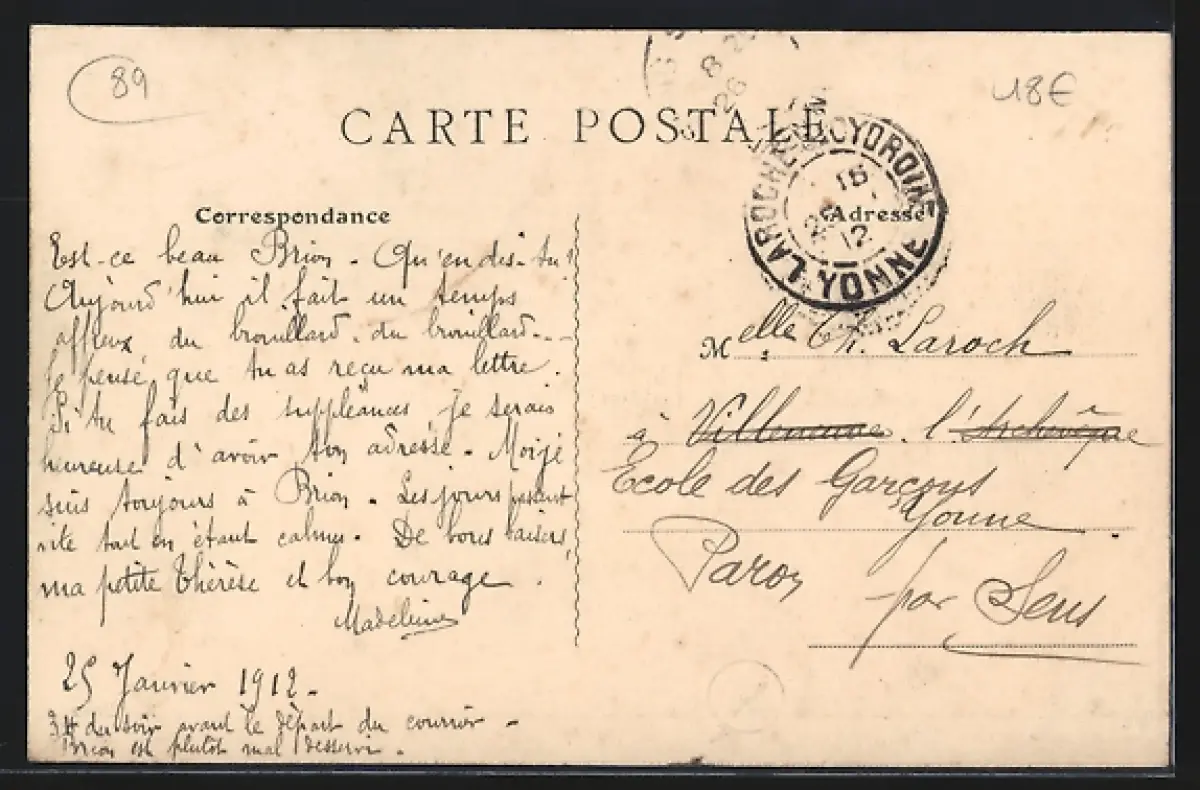 89
18€
CARTE POSTALE
LAROCHE ST CYDROINE
YONNE
25
12
Correspondance
Adresse
Est-ce beau Brion - Qu'en dis-tu?
Aujourd'hui il fait un temps
affreux, du brouillard, du brouillard...
Je pense que tu as reçu ma lettre.
Si tu fais des suppléances, je serais
heureuse d'avoir ton adresse. Moi je
suis toujours à Brion. Les jours passent
vite tout en étant calmes. De bons baisers,
ma petite Thérèse et bon courage.
Madeleine
25 Janvier 1912.
3H du soir avant le départ du courrier -
Brion est plutôt mal desservi.
Melle Th. Laroch
à Villeneuve l'Archevêque
Ecole des Garçons
Yonne
Paron
par Sens